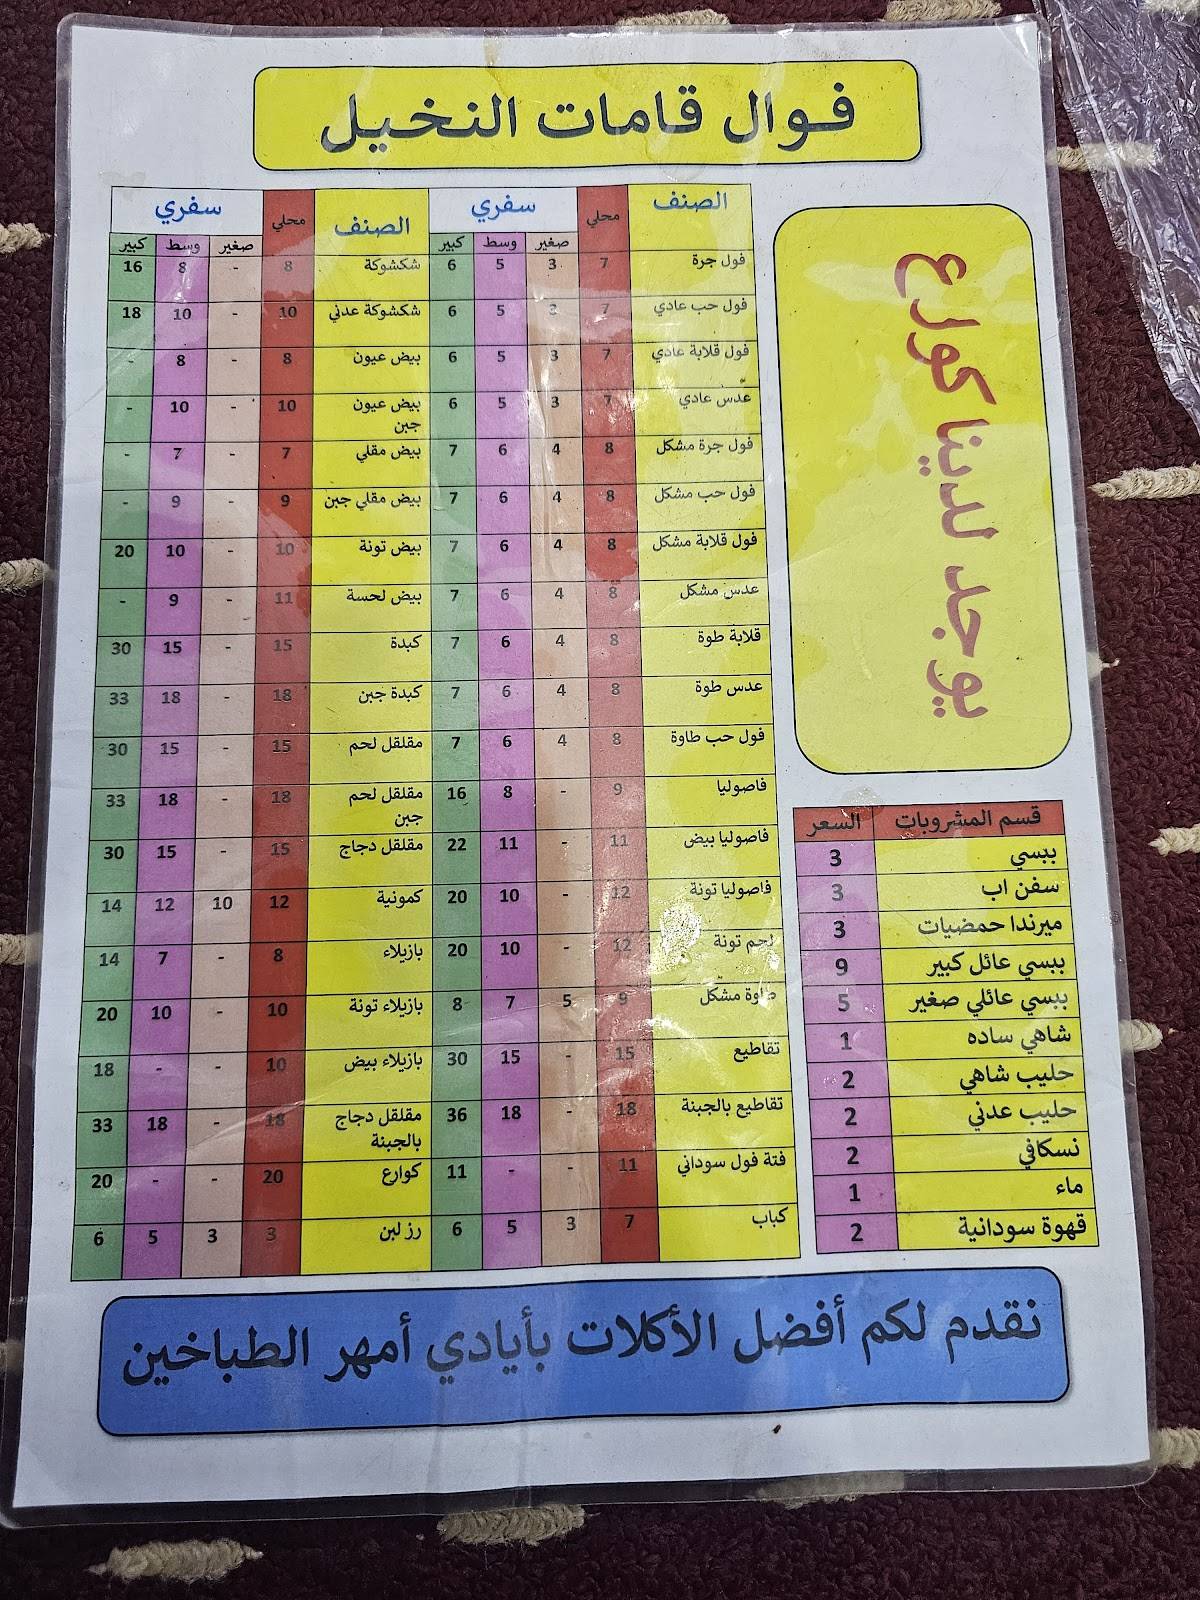 فوال قامات النخيل
الصنف محلي سفري الصنف محلي سفري
صغير وسط كبير صغير وسط كبير
فول جرة 7 3 5 6 شكشوكة 8 - 8 16
فول حب عادي 7 3 5 6 شكشوكة عدني 10 - 10 18
فول قلابة عادي 7 3 5 6 بيض عيون 8 - 8 -
عدس عادي 7 3 5 6 بيض عيون جبن 10 - 10 -
فول جرة مشكل 8 4 6 7 بيض مقلي 7 - 7 -
فول حب مشكل 8 4 6 7 بيض مقلي جبن 9 - 9 -
فول قلابة مشكل 8 4 6 7 بيض تونة 10 - 10 20
عدس مشكل 8 4 6 7 بيض لحسة 11 - 9 -
قلابة طوة 8 4 6 7 كبدة 15 - 15 30
عدس طوة 8 4 6 7 كبدة جبن 18 - 18 33
فول حب طاوة 8 4 6 7 مقلقل لحم 15 - 15 30
فاصوليا 9 - 8 16 مقلقل لحم جبن 18 - 18 33
فاصوليا بيض 11 - 11 22 مقلقل دجاج 15 - 15 30
فاصوليا تونة 12 - 10 20 كمونية 12 10 12 14
لحم تونة 12 - 10 20 بازيلاء 8 - 7 14
طوة مشكل 9 5 7 8 بازيلاء تونة 10 - 10 20
تقاطيع 15 - 15 30 بازيلاء بيض 10 - - 18
تقاطيع بالجبنة 18 - 18 36 مقلقل دجاج بالجبنة 18 - 18 33
فتة فول سوداني 11 - - 11 كوارع 20 - - 20
كباب 7 3 5 6 رز لبن 3 3 5 6
يوجد لدينا كوارع
قسم المشروبات السعر
ببسي 3
سفن اب 3
ميرندا حمضيات 3
ببسي عائل كبير 9
ببسي عائلي صغير 5
شاهي ساده 1
حليب شاهي 2
حليب عدني 2
نسكافي 2
ماء 1
قهوة سودانية 2
نقدم لكم أفضل الأكلات بأيادي أمهر الطباخين